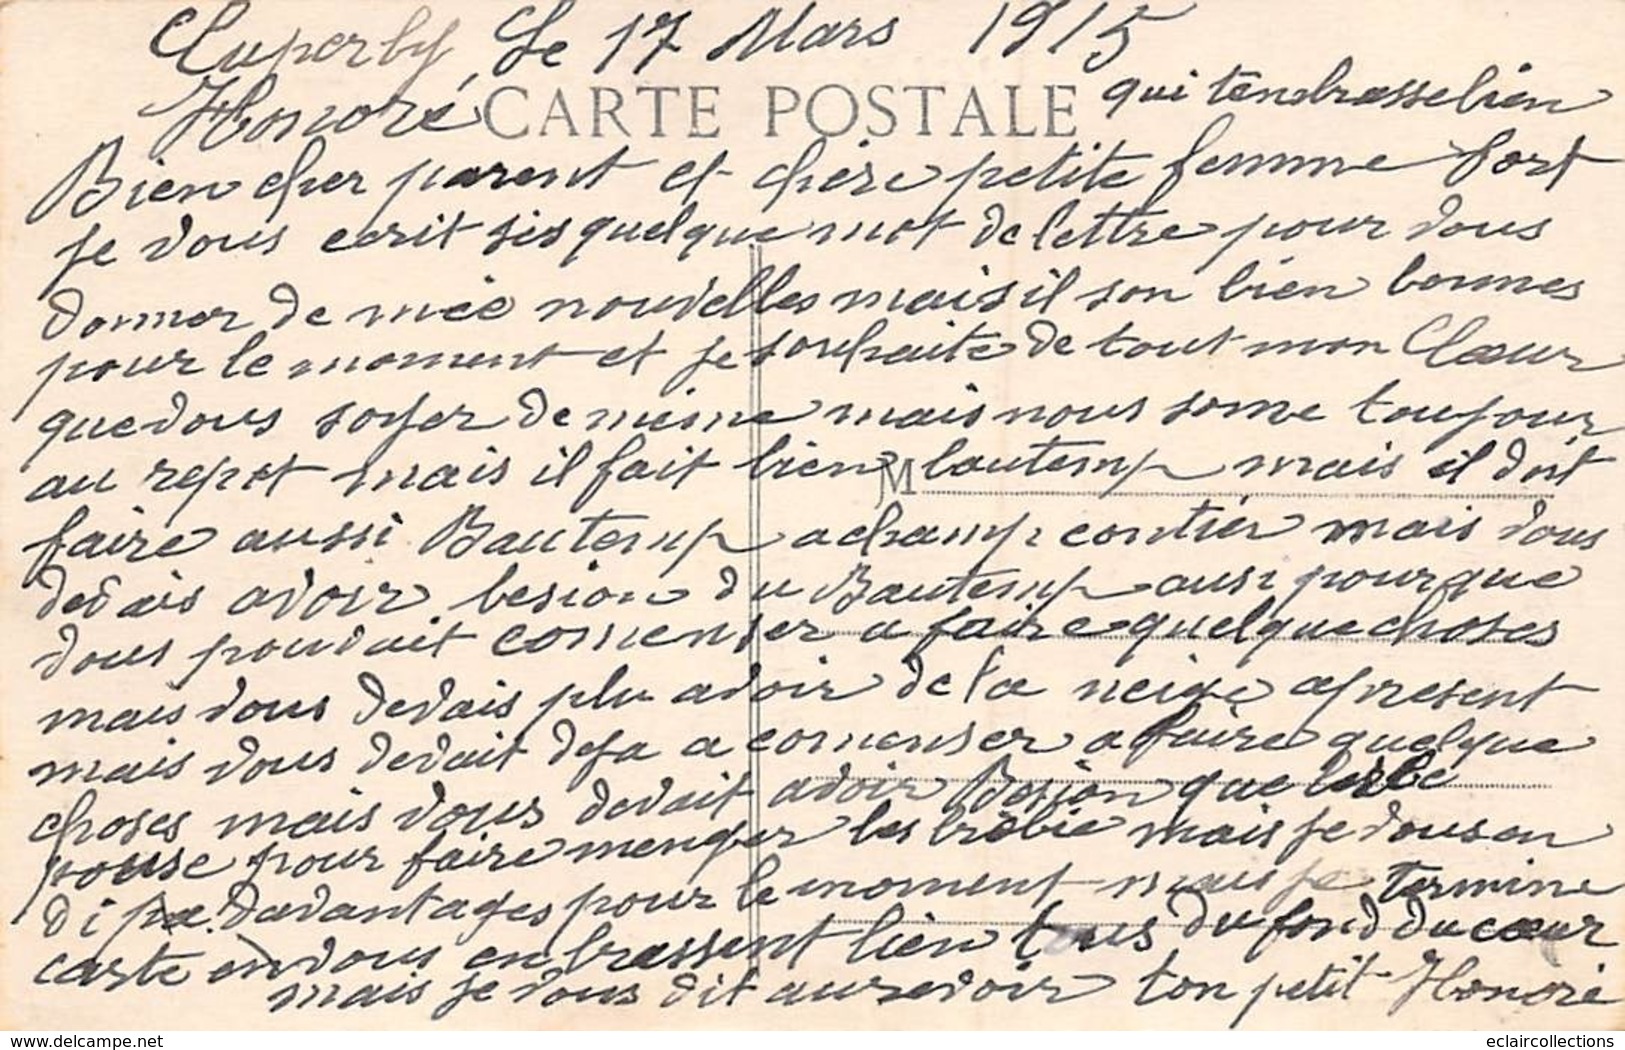 Le 17 Mars 1915
Honoré CARTE POSTALE qui tendrasse bien
Bien cher parent et chère petite femme fort
je vous ecrit sis quelque mot de lettre pour vous
donner de mée nouvelles mais il son bien bonnes
pour le moment et je souhaite de tout mon Cloeur
que vous soyer de mime mais nous some toujour
au repot mais il fait bien bautemp mais il doit
M
faire aussi Bautemp a champ contier mais vous
devais avoir besion du Bautemp ausi pourque
vous pouvait comenser a faire quelque choses
mais vous devais plu avoir de la neige apresent
mais vous devait deja a comenser a faire quelque
choses mais vous devait avoir Besion que
pouse pour faire menger les brebie mais je vous en
di pa davantages pour le moment mais je termine
carte en vous enbrassent bien tous du fond du cœur
mais je vous dit aurevoir ton petit Honoré
eclaircollections.com
eclaircollections